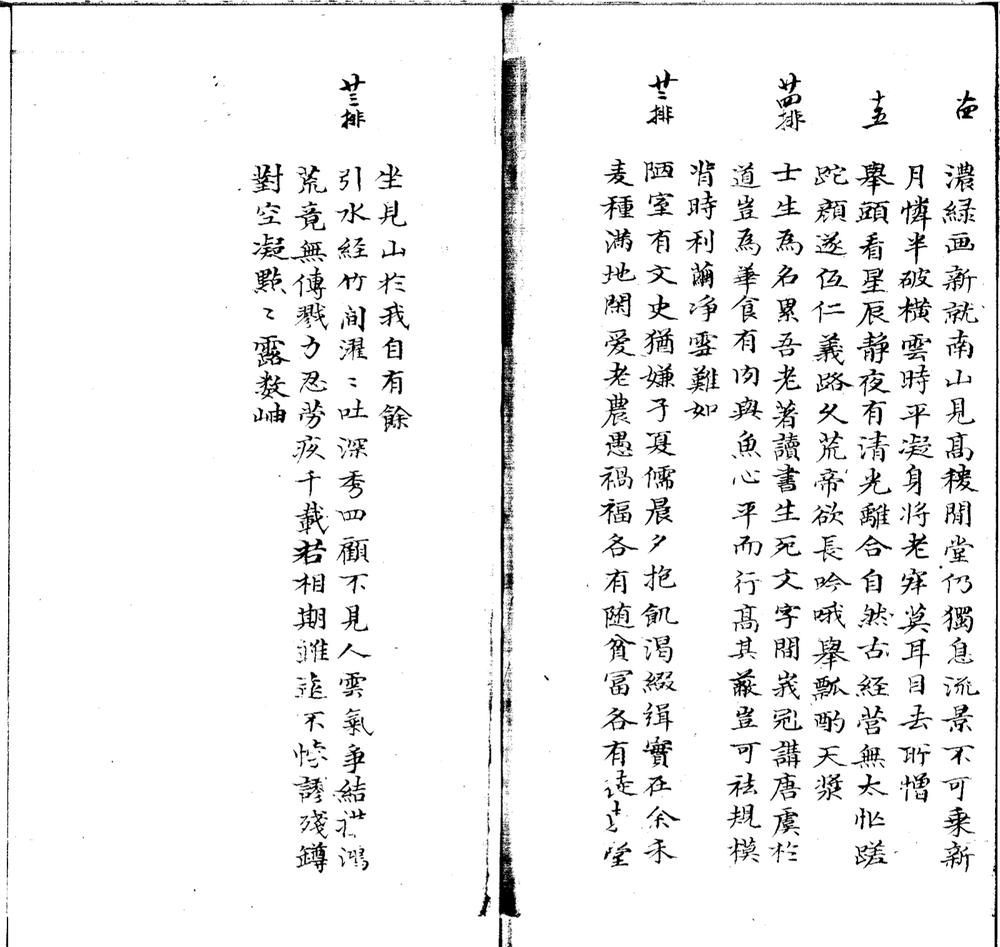 濃緑画新就南山見高稜閒堂仍獨息流景不可乗新
月憐半破横雲時平凝身将老寂莫耳目去所憎
舉頭看星辰静夜有清光離合自然古経営無太忙蹉
跎顏遂伍仁義路久荒帝欲長吟哦舉瓢酌天漿
廿四排
士生為名累吾老著讀書生死文字間峩冠講唐虞於
道豈為華食有肉與魚心平而行髙其蔽豈可祛規模
背時利繭浄雪難如
廿三排
陋室有文史猶嫌子夏儒晨夕抱飢渴綴緝實在余禾
麦種満地閑愛老農愚禍福各有随貧冨各有堂
坐見山於我自有餘
廿三排
引水経竹間濯〻吐深秀四顧不見人雲氣争結鴻
荒竟無傳戮力忍労疚千載若相期雖不残罇
對空凝㸃〻露数岫